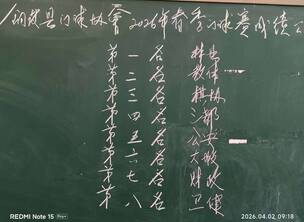 县门球协会2026年春季门球赛成绩公
第一名
第二名 教体
第三名 棋协
第四名 三郷
第五名 公安
第六名
第七名 财政
第八名 卫健
REDMI Note 15
2026.04.02 09:18